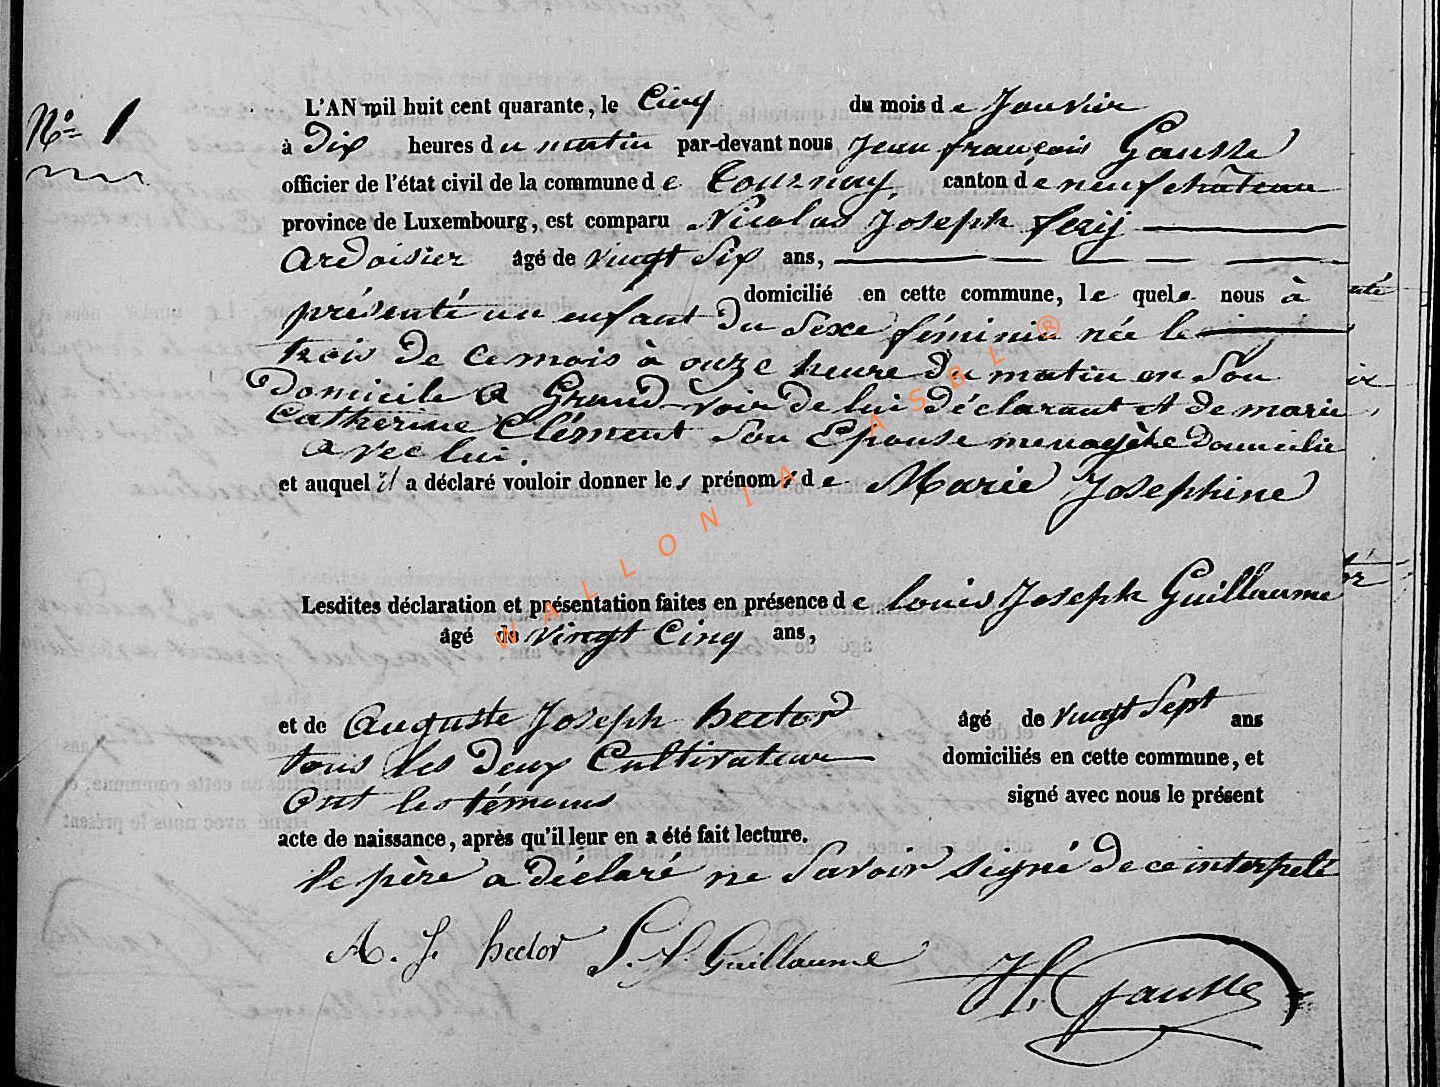 N° 1
L'AN mil huit cent quarante, le Cinq du mois de Janvier
à Dix heures du matin par-devant nous Jean françois Gausse
officier de l'état civil de la commune de Tournay, canton de neufchâteau
province de Luxembourg, est comparu Nicolas Joseph ferij
ardoisier âgé de vingt Six ans,
domicilié en cette commune, le quele nous à
présenté un enfant Du Sexe féminin née le
trois de ce mois à onze heure du matin en Son
Domicile a Grand-voir de lui déclarant et de marie
Catherine Clément Son Epouse menagère domicilié
avec lui.
et auquel il a déclaré vouloir donner les prénoms de Marie Josephine
Lesdites déclaration et présentation faites en présence de louis Joseph Guillaume
âgé de vingt Cinq ans,
et de Auguste Joseph hector âgé de vingt Sept ans
tous les deux Cultivateur domiciliés en cette commune, et
Ont les témoins signé avec nous le présent
acte de naissance, après qu'il leur en a été fait lecture.
le père a déclaré ne Savoir signé de ce interpelé
A. J. hector L. J. Guillaume J f. Gausse
WALLONIA ASBL ®